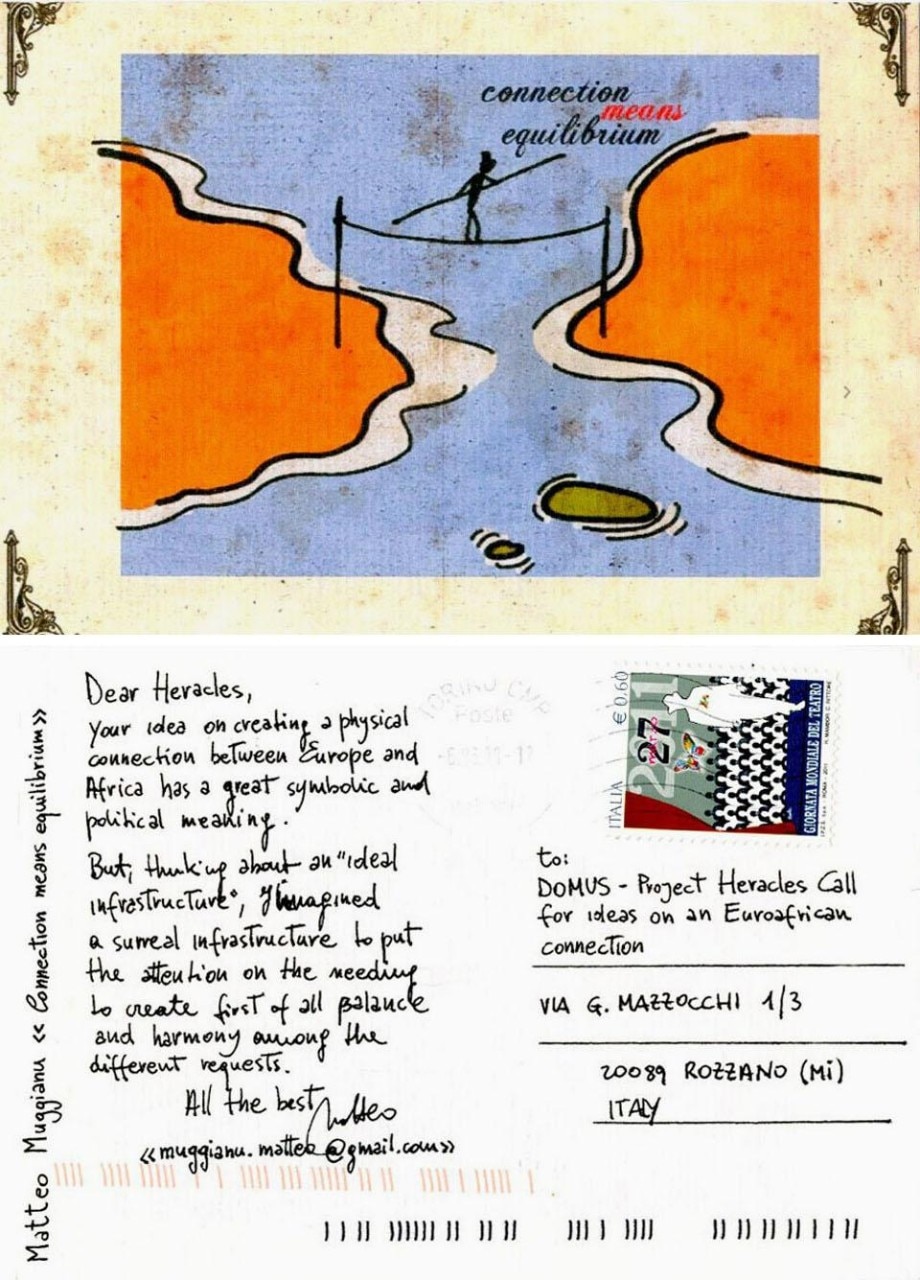 connection
means
equilibrium
Matteo Muggianu << Connection means equilibrium >>
Dear Heracles,
Your idea on creating a physical
connection between Europe and
Africa has a great symbolic and
political meaning.
But, thinking about an "ideal
infrastructure", I imagined
a surreal infrastructure to put
the attention on the needing
to create first of all balance
and harmony among the
different requests.
All the best,
Matteo
<<muggianu.matteo@gmail.com>>
TORINO CMP
Poste
ITALIA € 0,60
2011
27
MARZO
GIORNATA MONDIALE DEL TEATRO
to:
DOMUS - Project Heracles Call
for ideas on an Euroafrican
connection
VIA G. MAZZOCCHI 1/3
20089 ROZZANO (Mi)
ITALY